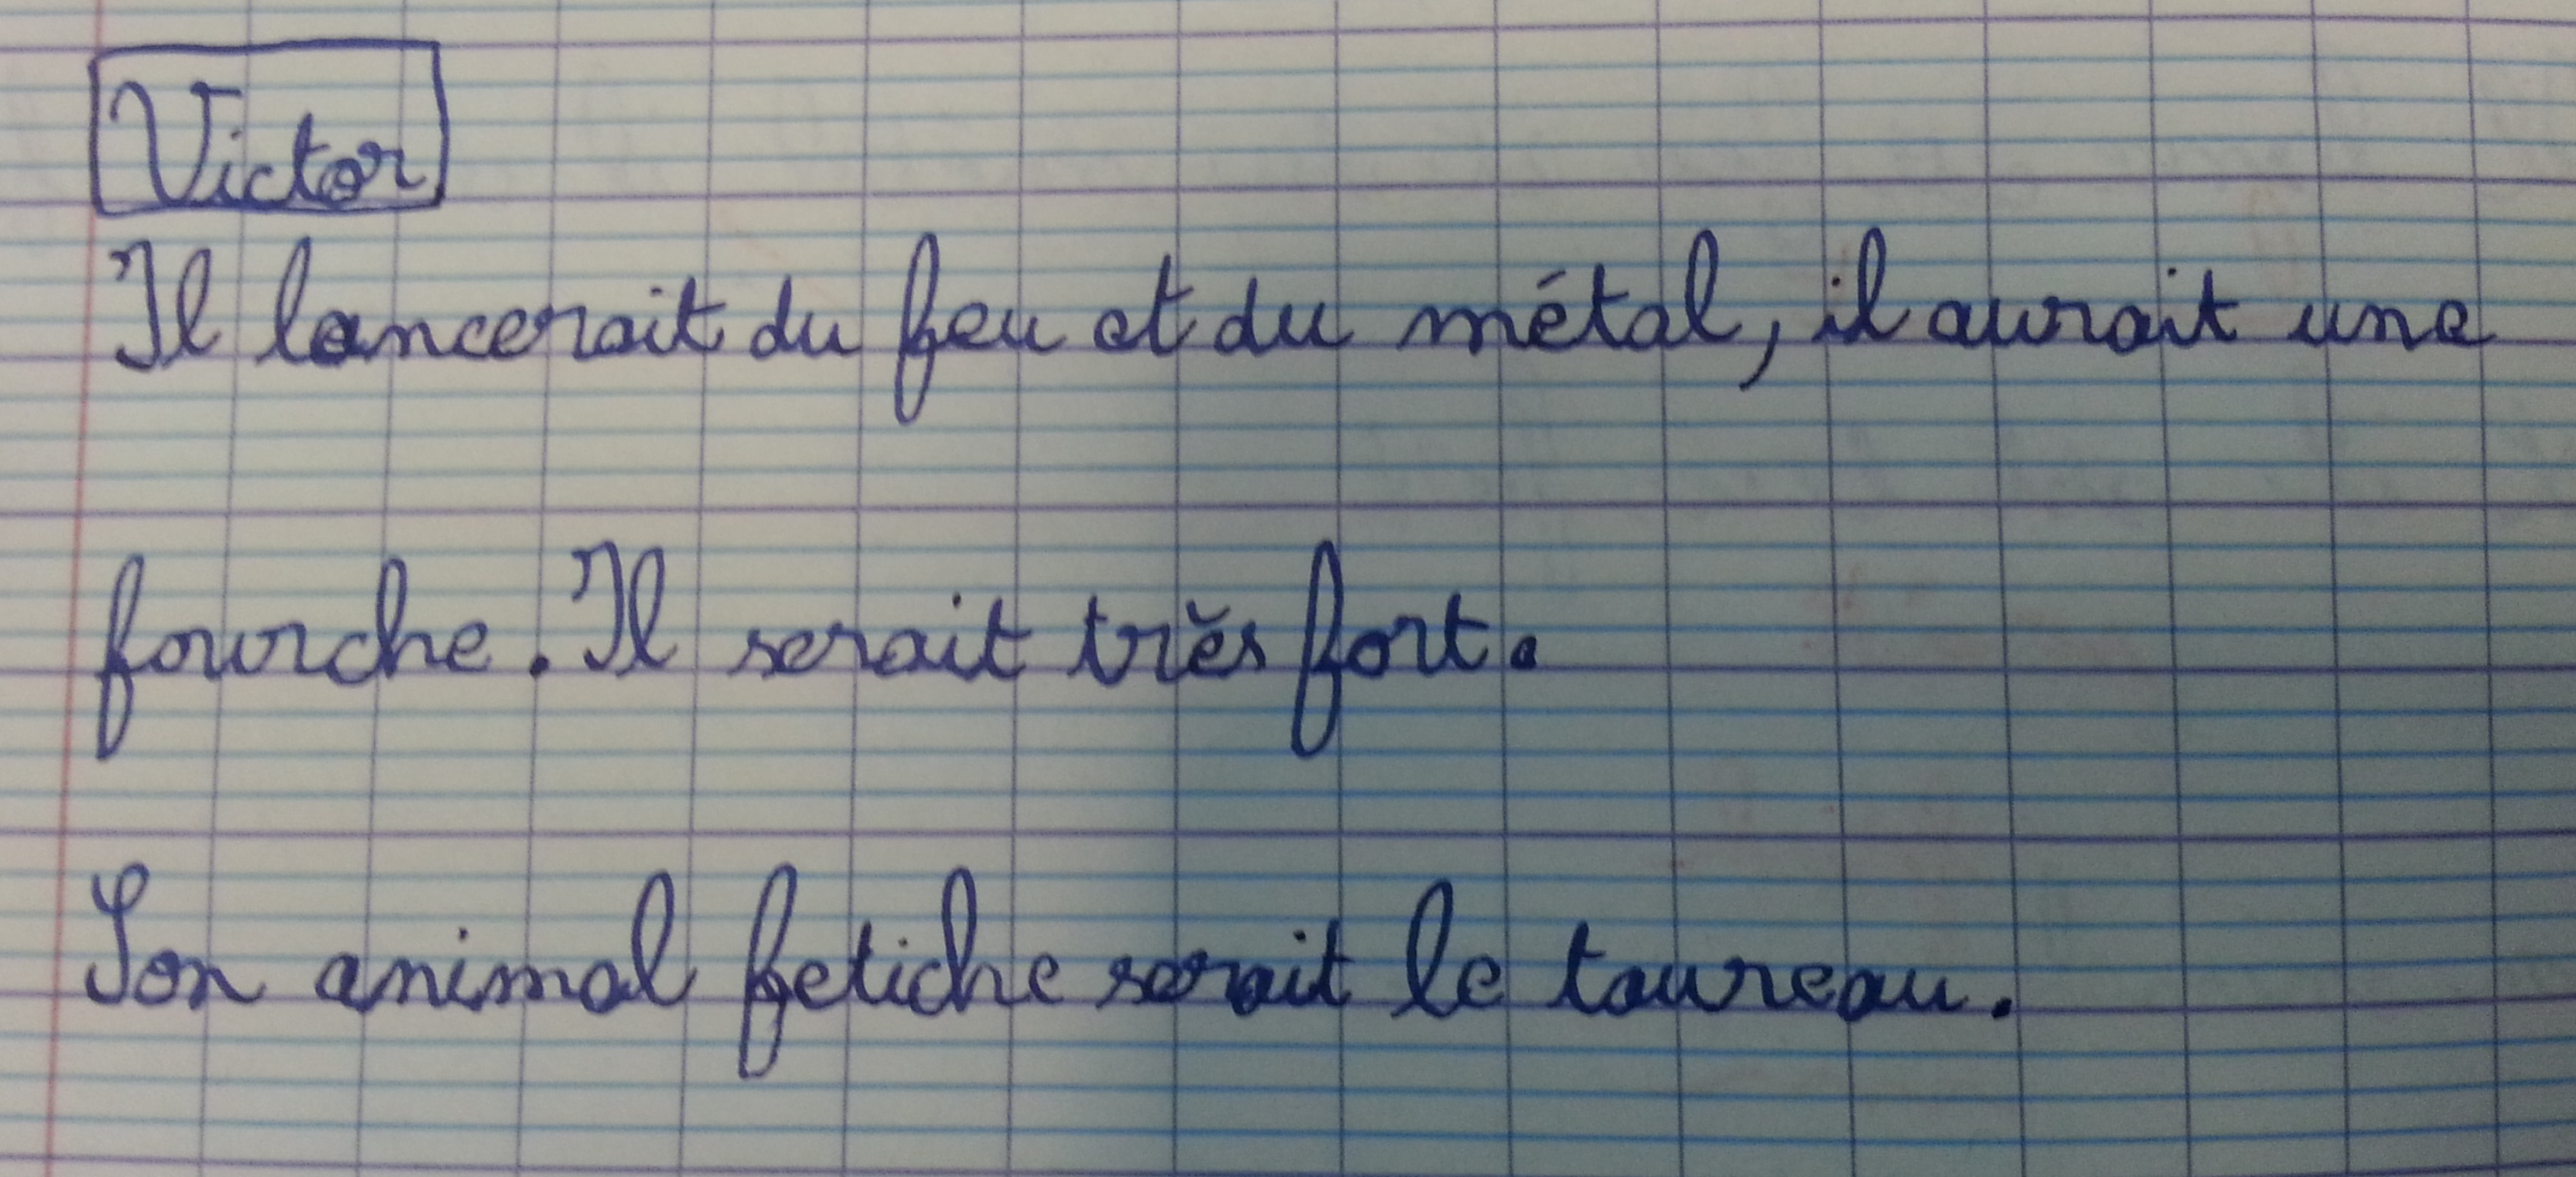 Victor
Il lancerait du feu et du métal, il aurait une
fourche. Il serait très fort.
Son animal fetiche serait le taureau.